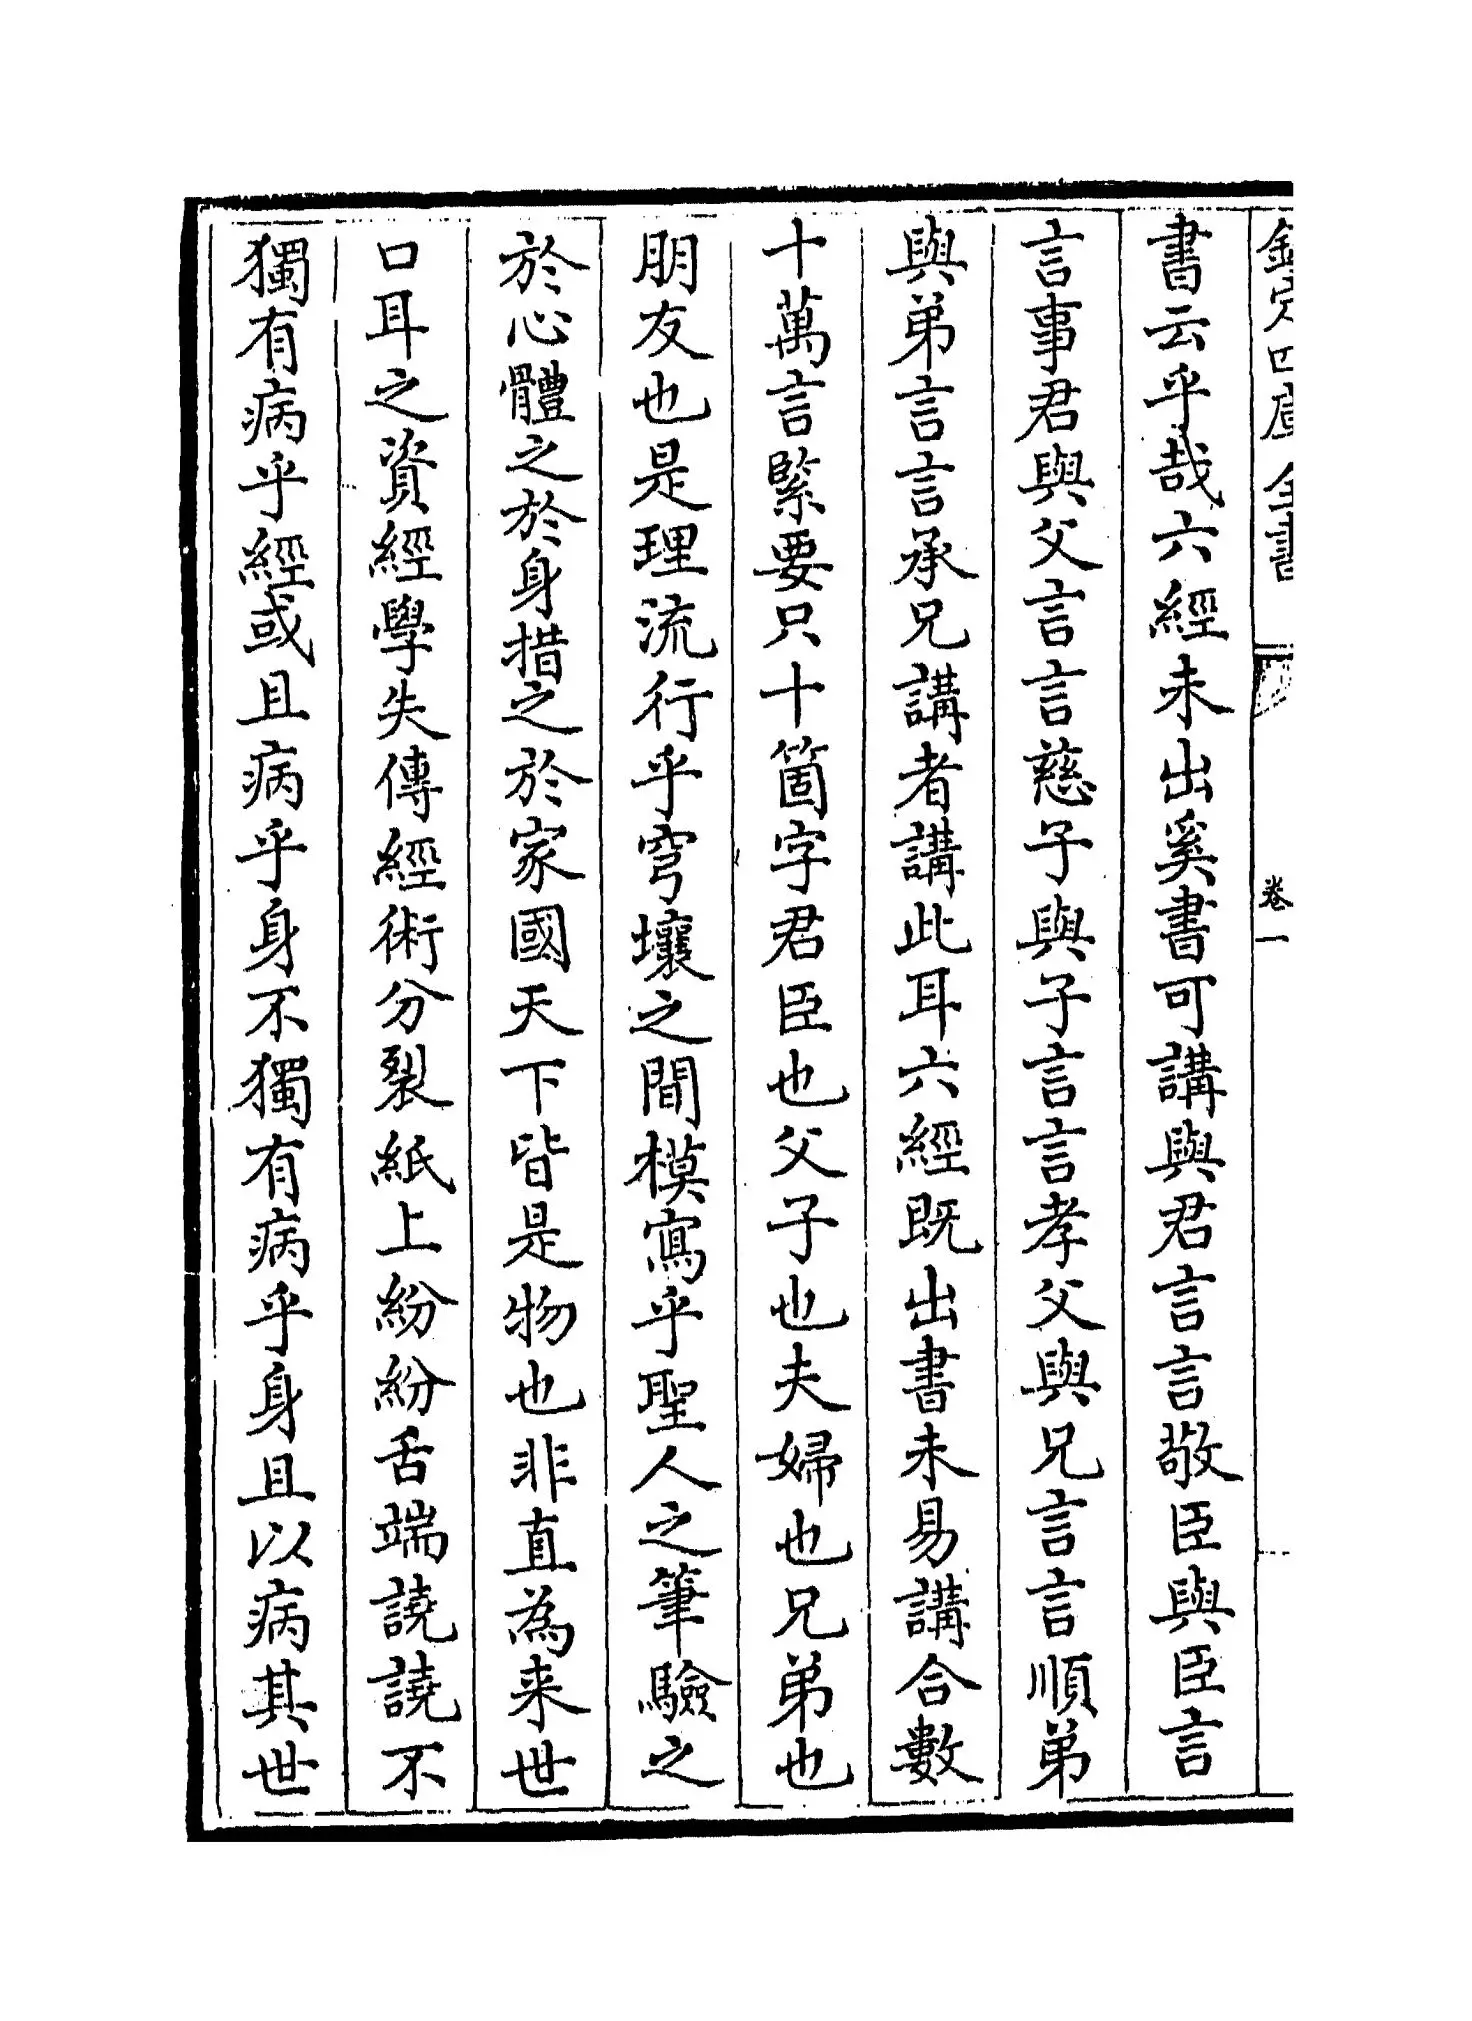 欽定四庫全書 卷一
書云乎哉六經未出奚書可講與君言言敬臣與臣言
言事君與父言言慈子與子言言孝父與兄言言順弟
與弟言言承兄講者講此耳六經既出書未易講合數
十萬言緊要只十箇字君臣也父子也夫婦也兄弟也
朋友也是理流行乎穹壤之間模寫乎聖人之筆驗之
於心體之於身措之於家國天下皆是物也非直為来世
口耳之資經學失傳經術分裂紙上紛紛舌端譊譊不
獨有病乎經或且病乎身不獨有病乎身且以病其世